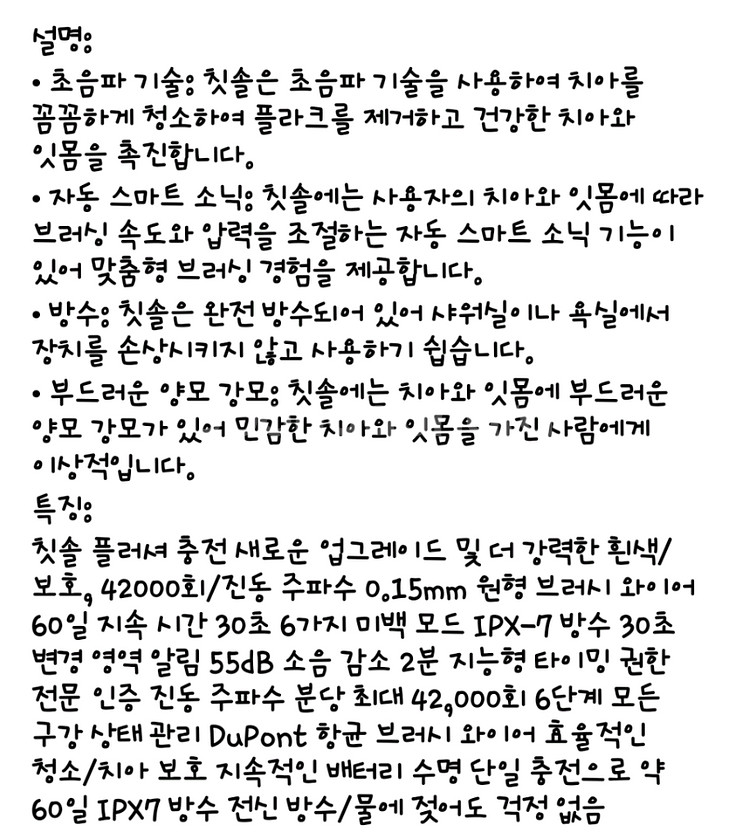 설명:
• 초음파 기술: 칫솔은 초음파 기술을 사용하여 치아를
꼼꼼하게 청소하여 플라크를 제거하고 건강한 치아와
잇몸을 촉진합니다.
• 자동 스마트 소닉: 칫솔에는 사용자의 치아와 잇몸에 따라
브러싱 속도와 압력을 조절하는 자동 스마트 소닉 기능이
있어 맞춤형 브러싱 경험을 제공합니다.
• 방수: 칫솔은 완전 방수되어 있어 샤워실이나 욕실에서
장치를 손상시키지 않고 사용하기 쉽습니다.
• 부드러운 양모 강모: 칫솔에는 치아와 잇몸에 부드러운
양모 강모가 있어 민감한 치아와 잇몸을 가진 사람에게
이상적입니다.
특징:
칫솔 플러셔 충전 새로운 업그레이드 및 더 강력한 흰색/
보호, 42000회/진동 주파수 0.15mm 원형 브러시 와이어
60일 지속 시간 30초 6가지 미백 모드 IPX-7 방수 30초
변경 영역 알림 55dB 소음 감소 2분 지능형 타이밍 권한
전문 인증 진동 주파수 분당 최대 42,000회 6단계 모든
구강 상태 관리 DuPont 항균 브러시 와이어 효율적인
청소/치아 보호 지속적인 배터리 수명 단일 충전으로 약
60일 IPX7 방수 전신 방수/물에 젖어도 걱정 없음